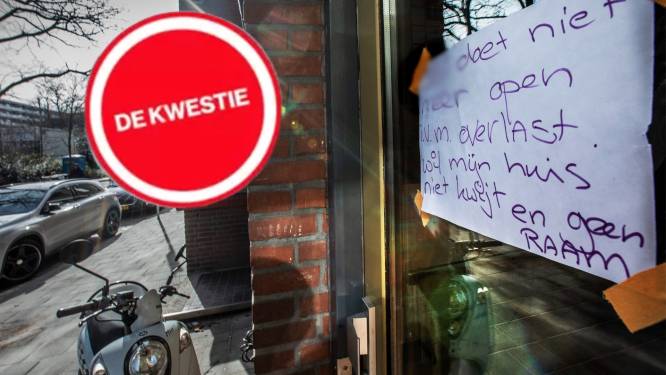 DE KWESTIE
doet niet
meer open
i.v.m. overlast.
wil mijn huis
niet kwijt en geen
RAAM